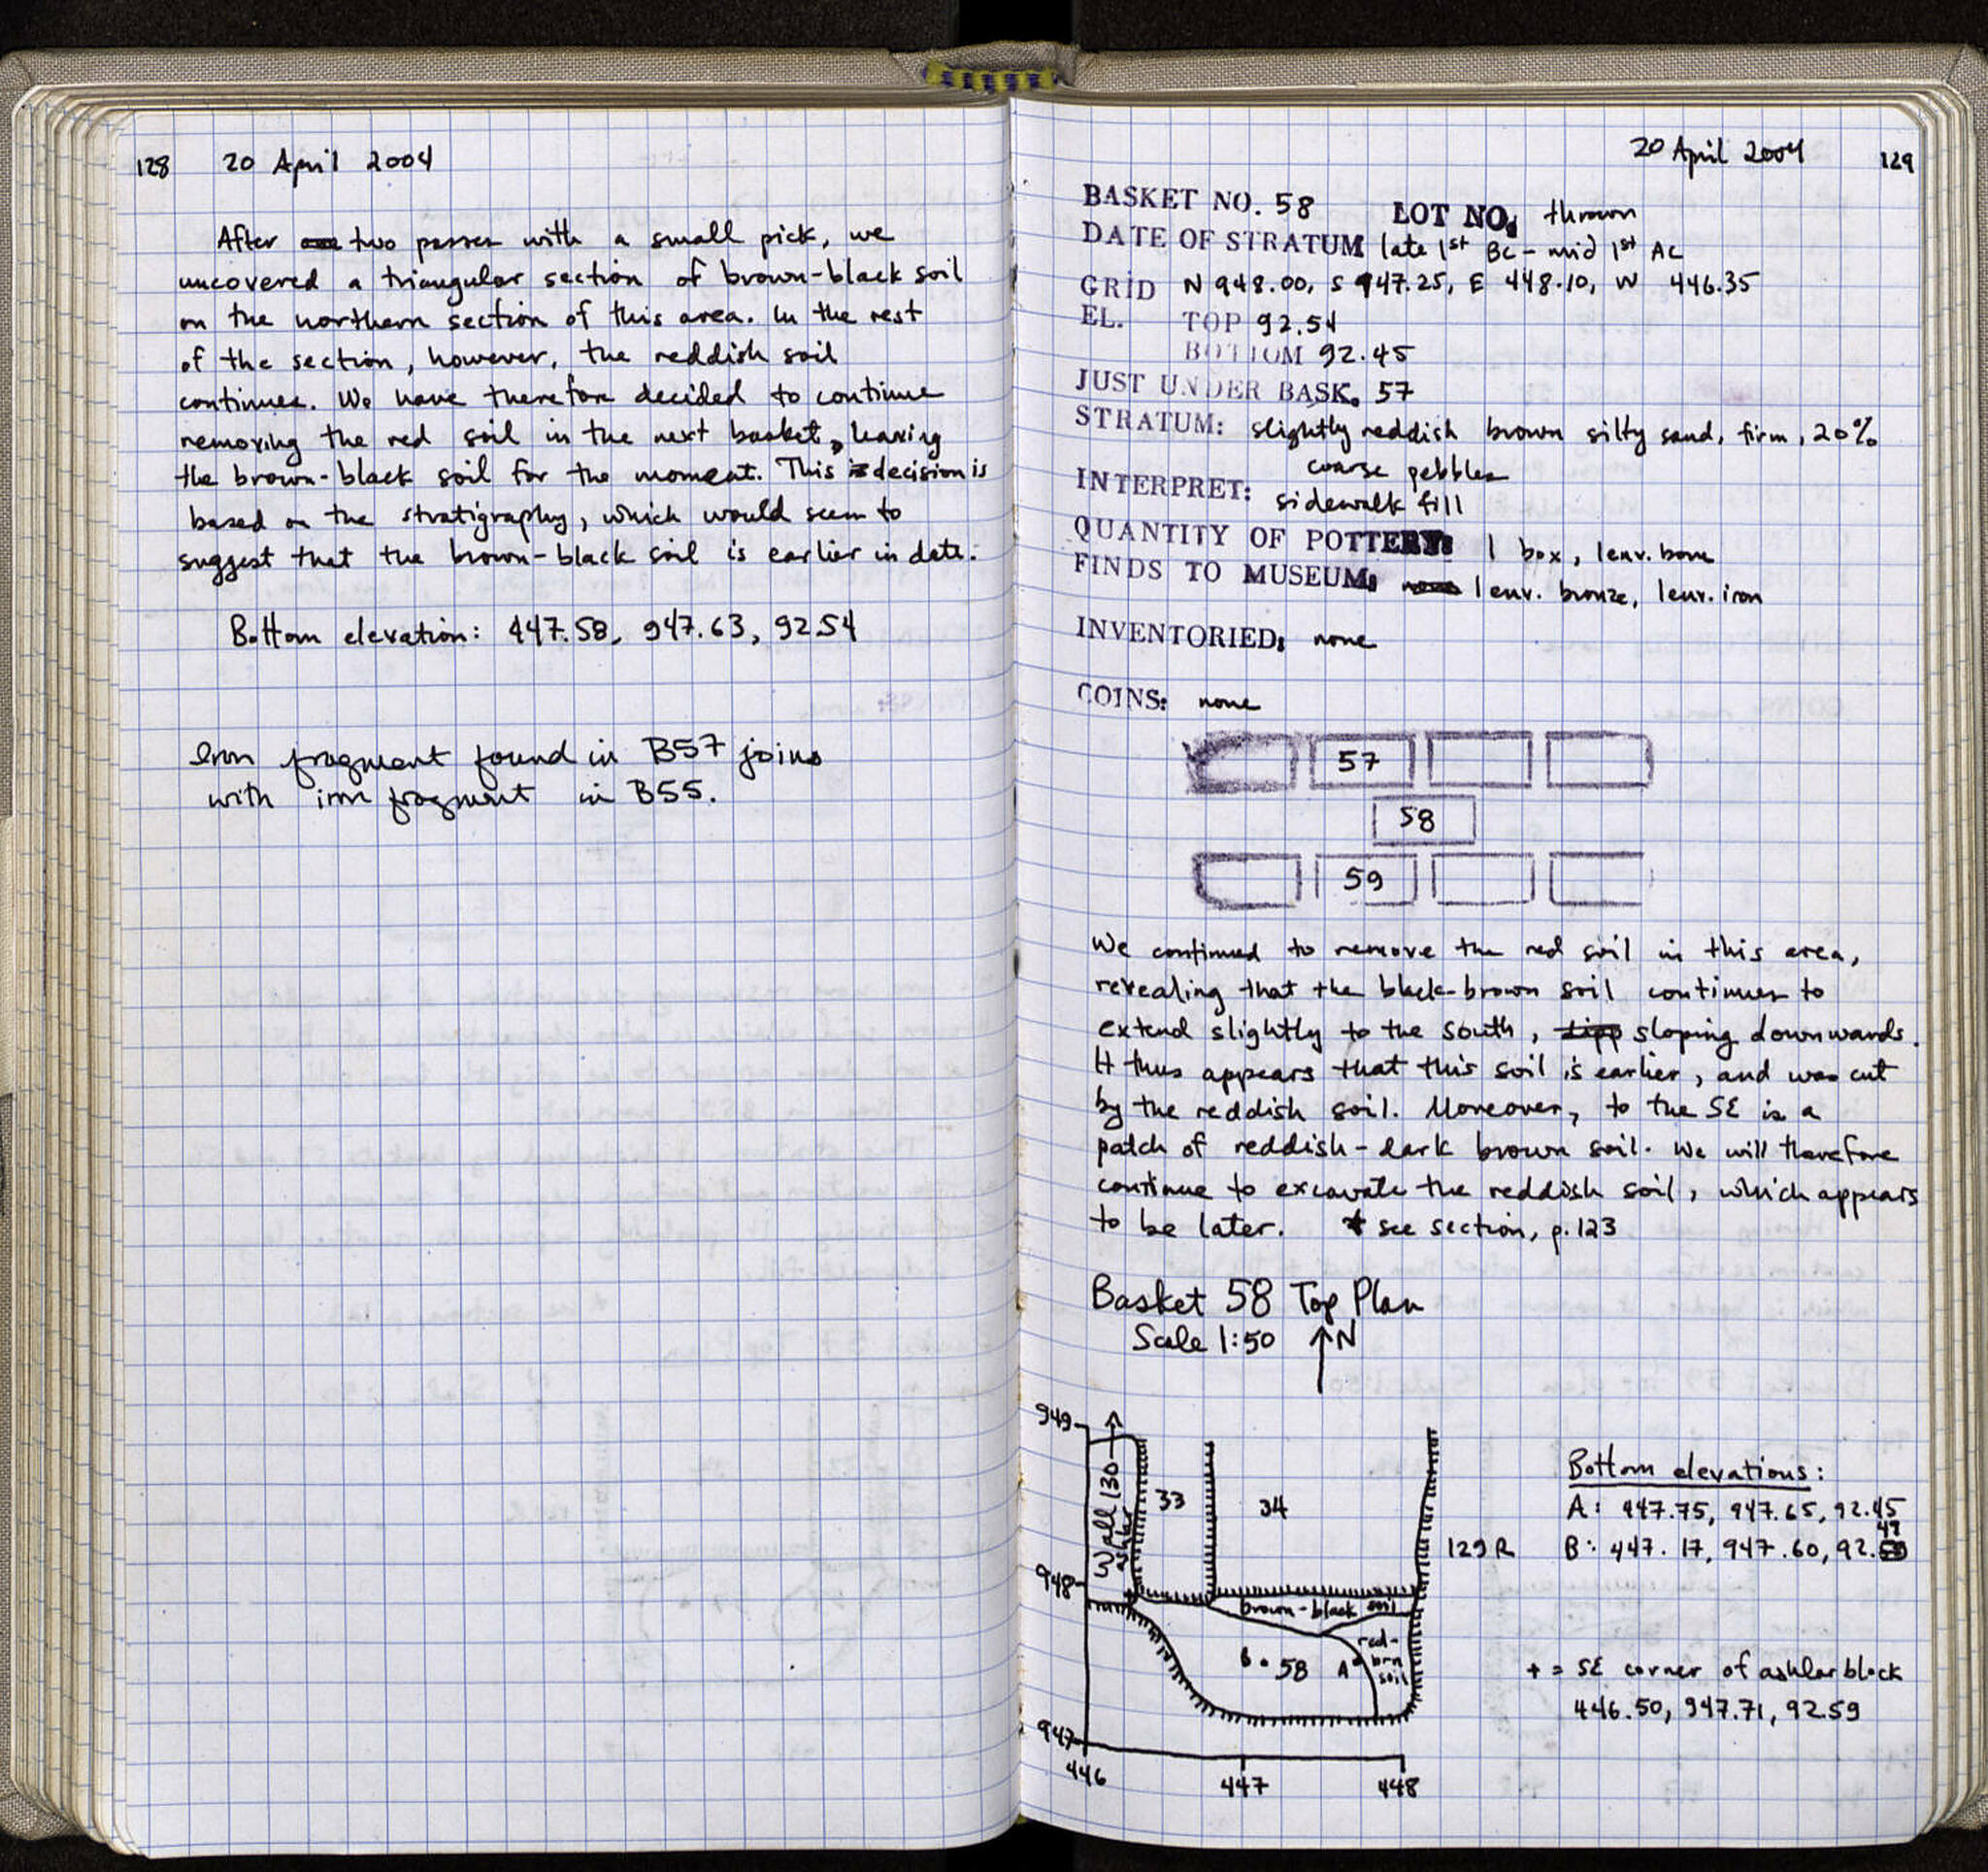 128 20 April 2004
After two passes with a small pick, we
uncovered a triangular section of brown-black soil
on the northern section of this area. In the rest
of the section, however, the reddish soil
continues. We have therefore decided to continue
removing the red soil in the next basket, leaving
the brown-black soil for the moment. This decision is
based on the stratigraphy, which would seem to
suggest that the brown-black soil is earlier in date.
Bottom elevation: 447.58, 947.63, 92.54
Iron fragment found in B57 joins
with iron fragment in B55.
20 April 2004 129
BASKET NO. 58 LOT NO. thrown
DATE OF STRATUM late 1st BC - mid 1st AC
GRID N 948.00, S 947.25, E 448.10, W 446.35
EL. TOP 92.54
BOTTOM 92.45
JUST UNDER BASK. 57
STRATUM: slightly reddish brown silty sand, firm, 20%
coarse pebbles
INTERPRET: sidewalk fill
QUANTITY OF POTTERY: 1 box, 1 env. bone
FINDS TO MUSEUM: 1 env. bronze, 1 env. iron
INVENTORIED: none
COINS: none
57
58
59
We continued to remove the red soil in this area,
revealing that the black-brown soil continues to
extend slightly to the south, sloping downwards.
It thus appears that this soil is earlier, and was cut
by the reddish soil. Moreover, to the SE is a
patch of reddish-dark brown soil. We will therefore
continue to excavate the reddish soil, which appears
to be later. * see section, p. 123
Basket 58 Top Plan
Scale 1:50 N
949
Wall 130
ashlar
33
34
948
brown-black soil
red-
brn
soil
B
58
A
947
446
447
448
129R
Bottom elevations:
A: 447.75, 947.65, 92.45
B: 447.17, 947.60, 92.49
+ = SE corner of ashlar block
446.50, 947.71, 92.59